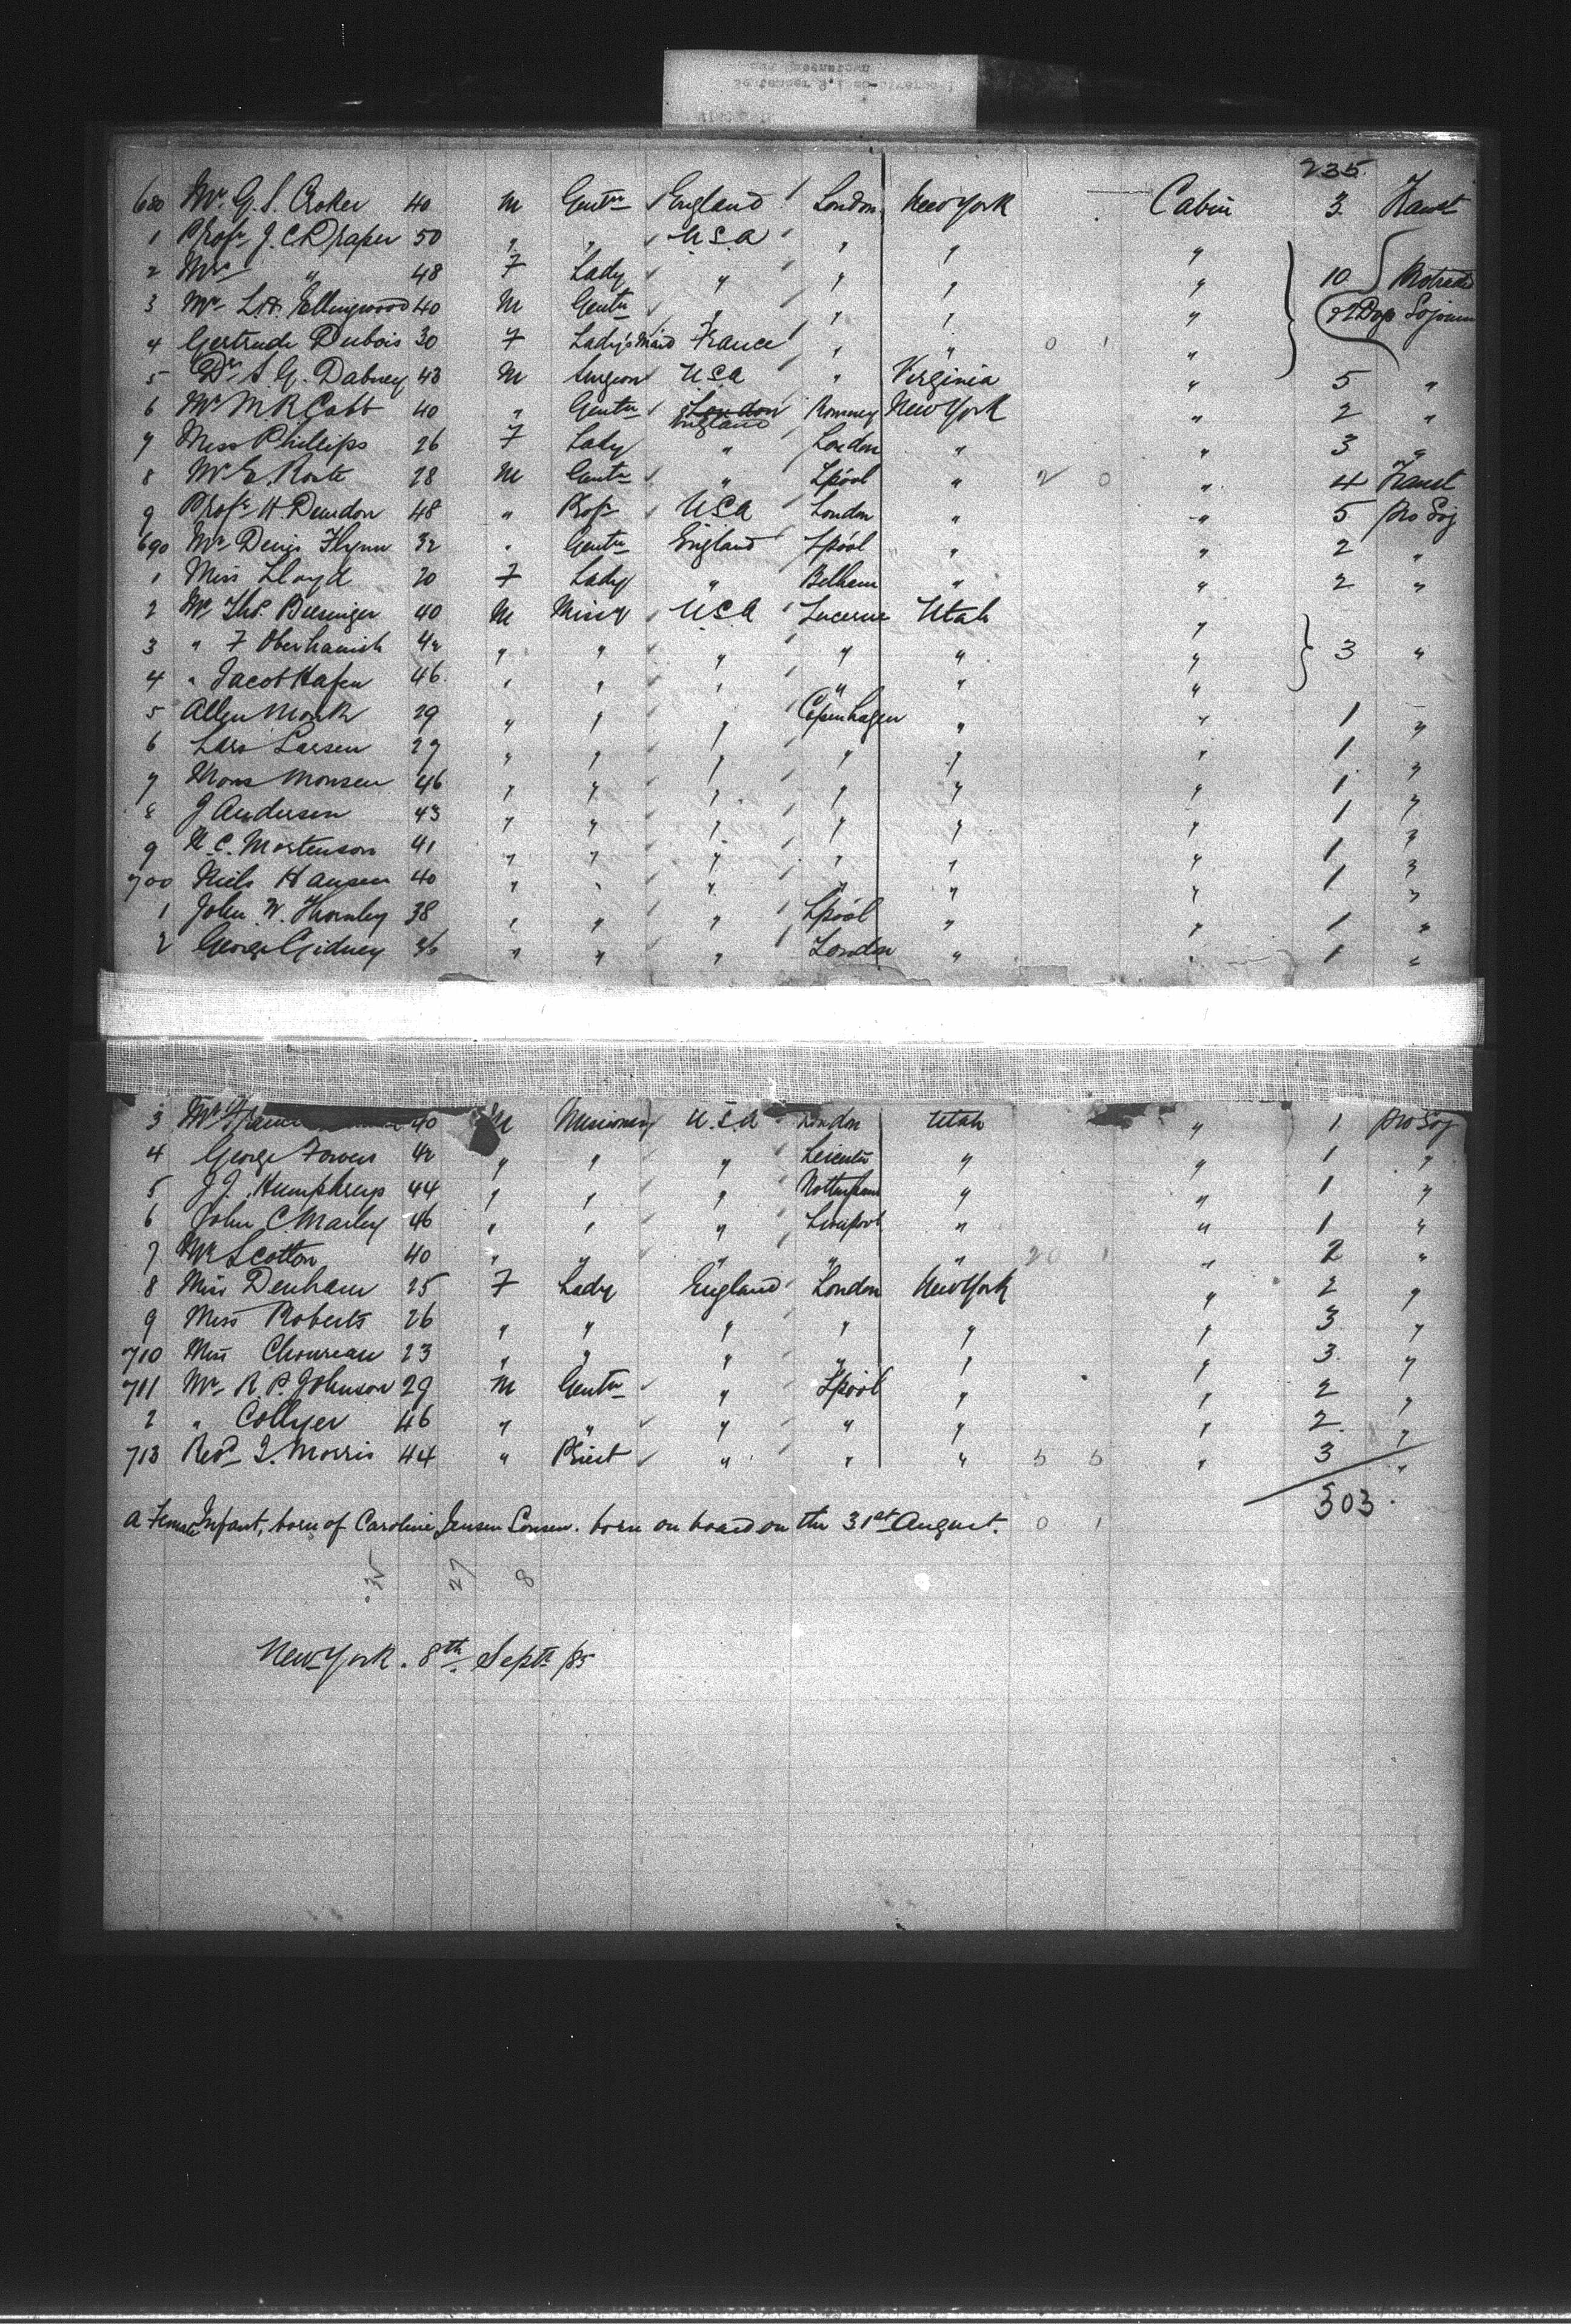 235.
680 Mr. G. S. Croker 40 M Gentn England London New York Cabin 3. Transt
1 Profr J. C. Draper 50 " " U.S.A " " " 
2 Mrs " 48 F Lady " " " " 10 Protracted
3 Mr L.H. Ellingwood 40 M Gentn " " " " Sojourn
4 Gertrude Dubois 30 F Lady's Maid France " " 0 1 "
5 Dr S. G. Dabney 43 M Surgeon USA " Virginia " 5 "
6 Mr M R Cobb 40 " Gentn London England Romney New York " 2 "
7 Miss Phillips 26 F Lady " London " " 3 "
8 Mr E. Route 28 M Gentn " Lpool " 2 0 " 4 Transt
9 Profr H 48 " Profr USA London " " 5 Pro Soj
690 Mr Denis Flynn 32 " Gentn England Lpool " " 2 "
1 Miss Lloyd 20 F Lady " " " 2 "
2 Mr Ths. Biesinger 40 M Missy USA Lucerne Utah "
3 " F Oberhansli 42 " " " " " " 3 "
4 " Jacob Hafen 46 " " " " " "
5 Allen Monk 29 " " " Copenhagen " " 1 "
6 Lars Larsen 29 " " " " " " 1 "
7 Mons Monsen 46 " " " " " " 1 "
8 J Andersen 43 " " " " " " 1 "
9 C. Mortenson 41 " " " " " " 1 "
700 Niels Hansen 40 " " " " " " 1 "
1 John W. Thornley 38 " " " Lpool " " 1 "
2 George Gidney 36 " " " London " " 1 "
3 Mr 40 M Missionary U.S.A London Utah " 1 Pro Soj
4 George Fowers 42 " " " Leicester " " 1 "
5 J J. Humphreys 44 " " " Nottingham " " 1 "
6 John C Marley 46 " " " Liverpool " " 1 "
7 Mr Scotton 40 " " " " " 20 1 " 2 "
8 Miss Denham 25 F Lady England London New York " 2 "
9 Miss Roberts 26 " " " " " " 3 "
710 Miss 23 " " " " " " 3. "
711 Mr R. P. Johnson 29 M Gentn " Lpool " " 2 "
2 " Collyer 46 " " " " " " 2. "
713 Revd J. Morris 44 " Priest " " " 5 5 " 3 "
303.
A Female Infant, born of Caroline Jensen born on board on the 31st August. 0 1
27 8
New York. 8th Septr /85